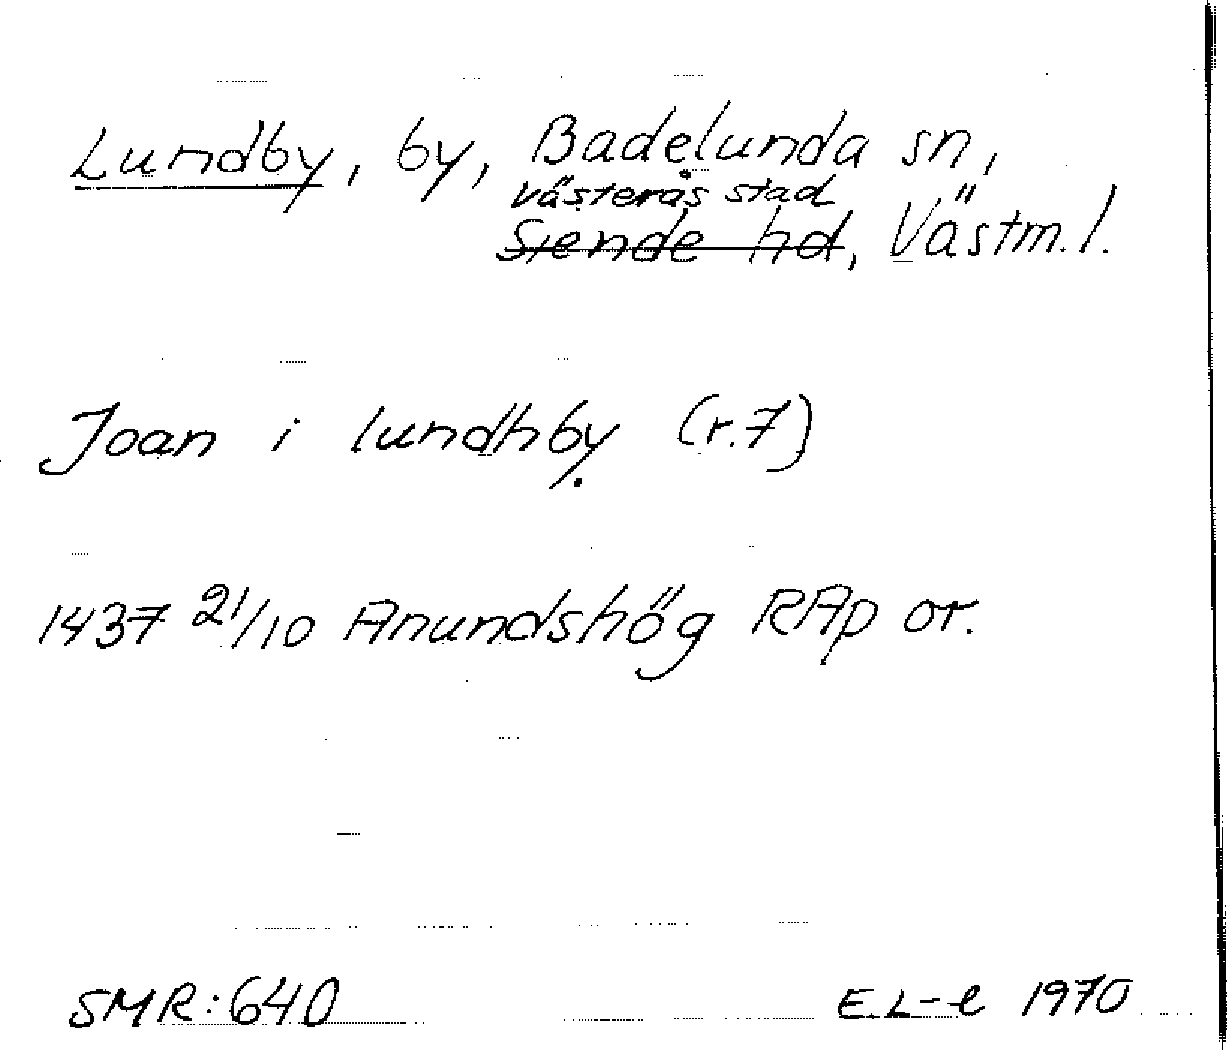 Lundby, by, Badelunda sn,
västerås stad
Siende hd, Västm.l.
Joan i lundhby (r.7)
1437 21/10 Anundshög RAp or.
SMR:640 E.L-e 1970